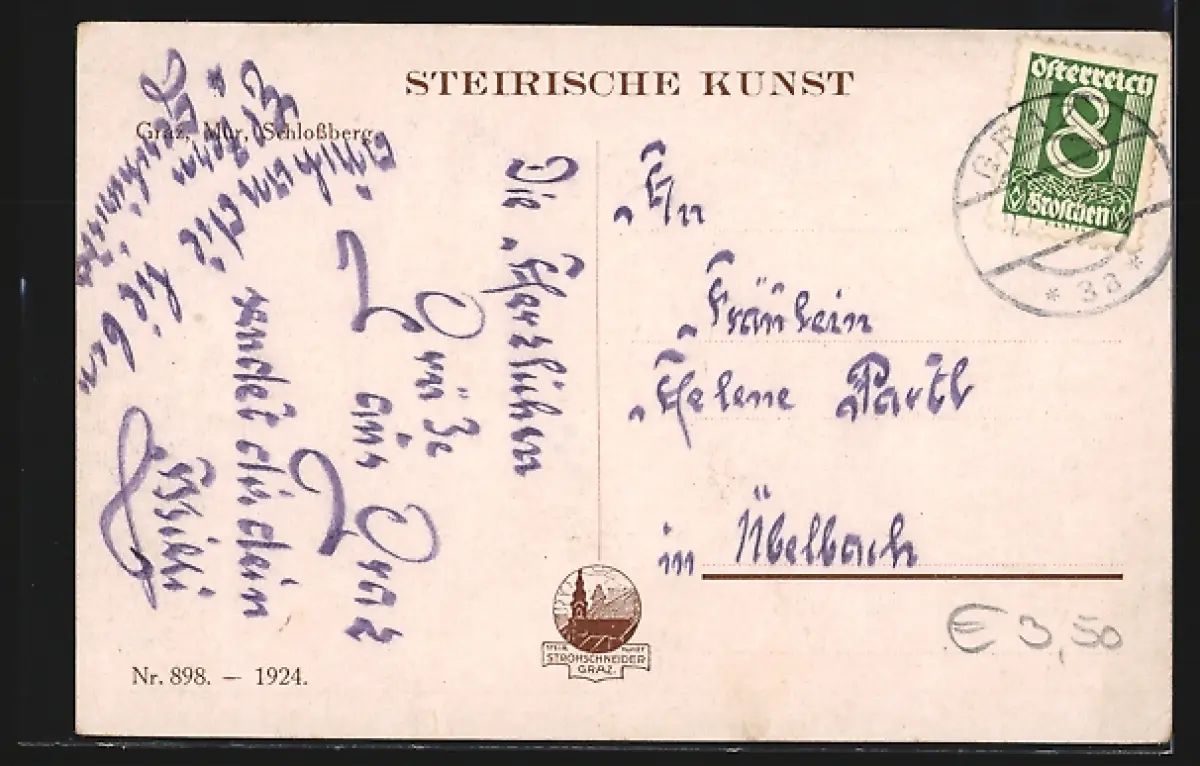 STEIRISCHE KUNST
Graz, Mur, Schloßberg.
Die Herzlichen
Grüße
aus Graz
sendet dir dein
Gissi
lieben
Eltern
An
Fräulein
Helene Partl
in Übelbach
Österreich
8
Groschen
GRAZ
* 3a *
STROHSCHNEIDER
GRAZ.
€ 3,50
Nr. 898. — 1924.